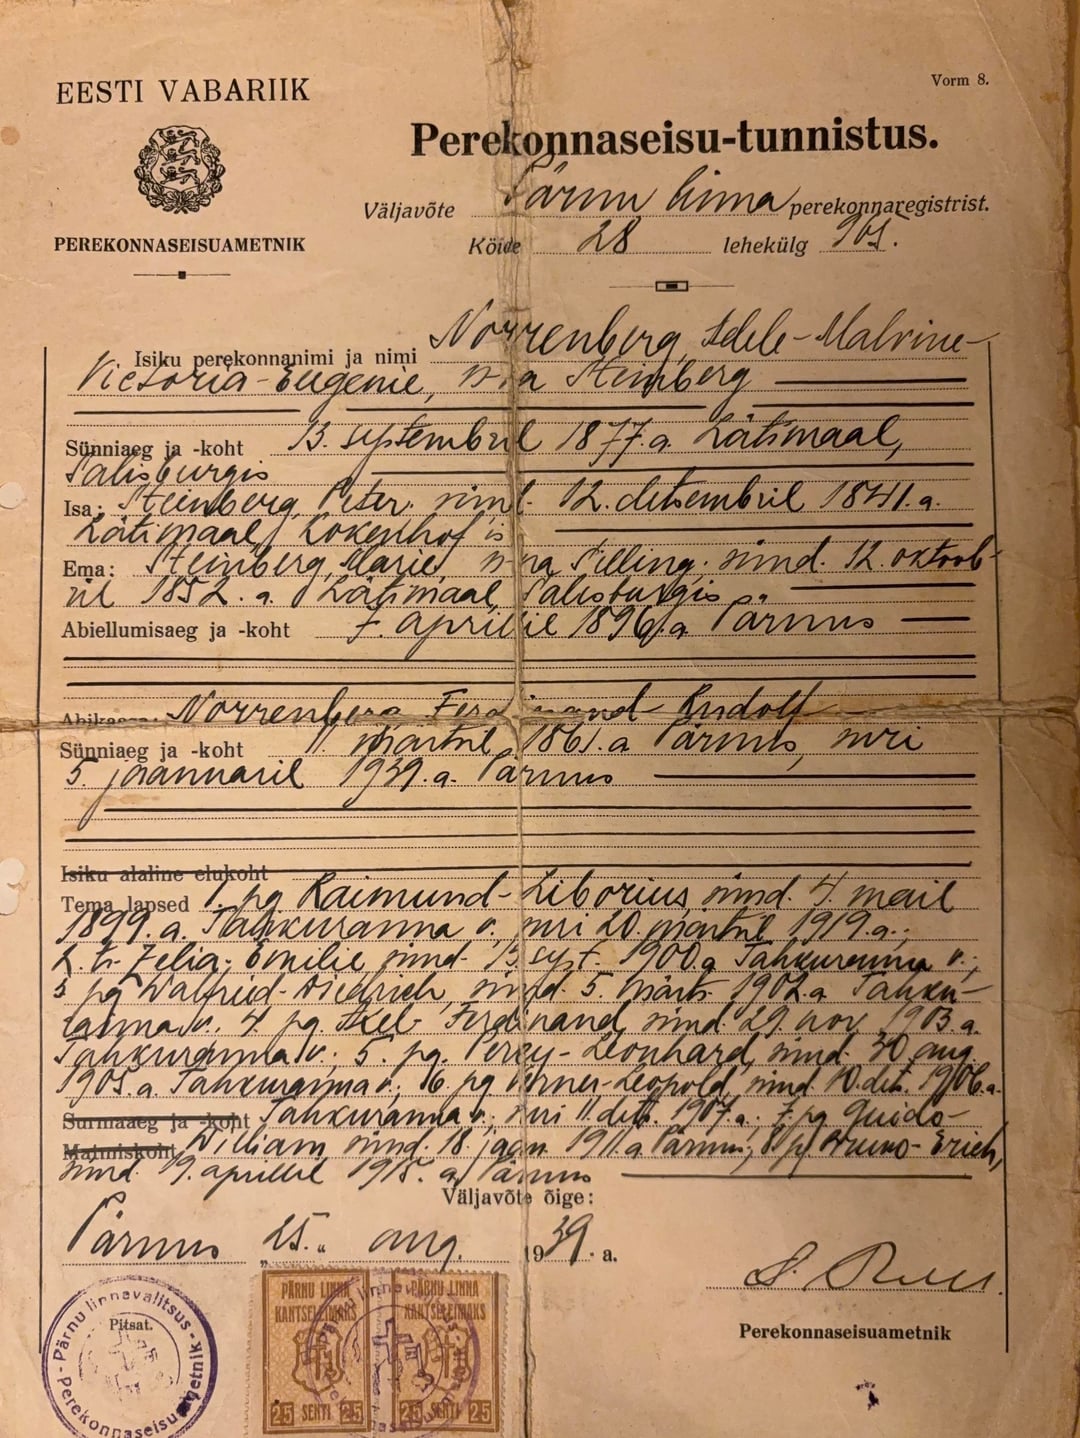 Vorm 8.
EESTI VABARIIK
PEREKONNASEISUAMETNIK
Perekonnaseisu-tunnistus.
Väljavõte Pärnu linna perekonnaregistrist.
Köide 28 lehekülg 905.
Isiku perekonnanimi ja nimi Norrenberg, Adele-Malvine-
Victoria-Eugenie, sünd. Steinberg
Sünniaeg ja -koht 13. septembril 1877.a. Lätimaal,
Salisburgis
Isa: Steinberg, Peter. sünd. 12. detsembril 1841.a.
Lätimaal, Kokenhof is
Ema: Steinberg, Marie, Pilling. sünd. 12. oktoob-
ril 1852.a. Lätimaal, Salisburgis.
Abiellumisaeg ja -koht 7. aprillil 1896.a. Pärnus
Abikaasa: Norrenberg Ferdinand Rudolf
Sünniaeg ja -koht 11. märtsil 1861.a Pärnus, suri
5. jaanuaril 1939.a. Pärnus
Isiku alaline elukoht
Tema lapsed 1. pg Raimund-Liborius, sünd. 4. mail
1899.a. Tahkuranna v., suri 20. märtsil 1919.a.;
2. tr. Zelia-Emilie sünd. 13. sept. 1900.a Tahkuranna v.;
3 pg Walfried-Diedrich, sünd. 5. märts. 1902.a Tahku-
ranna v. 4. pg. Axel-Ferdinand, sünd. 29. nov. 1903.a.
Tahkuranna v.; 5. pg. Percy-Leonhard, sünd. 30 aug.
1905.a. Tahkuranna v.; 6. pg Verner-Leopold, sünd. 10. dets. 1906.a.
Surmaaeg ja -koht Tahkuranna v.; suri 11. dets. 1907.a.; 7. pg Guido-
Matmiskoht William, sünd. 18 jaan. 1911.a Pärnus; 8 pg Bruno-Erich,
sünd. 19. aprillil 1915.a. Pärnus
Väljavõte õige:
Pärnus „25." aug. 1939. a.
Perekonnaseisuametnik
Pitsat.
Pärnu linnavalitsus - Perekonnaseisuametnik
PÄRNU LINNA KANTSELEIMAKS 25 SENTI 25
PÄRNU LINNA KANTSELEIMAKS 25 SENTI 25